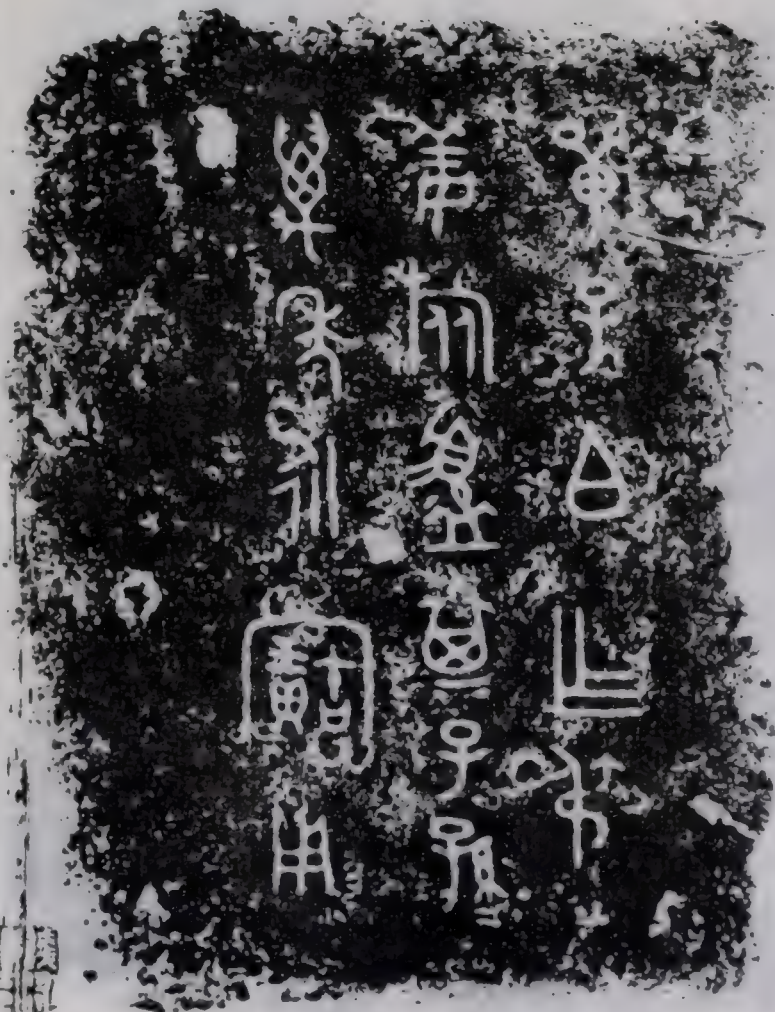 單子白乍弔
姜旅盨其子孫
萬年永寶用